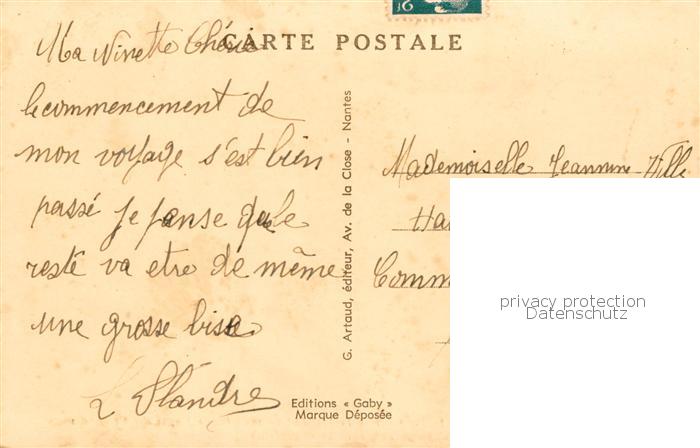 CARTE POSTALE
Ma Ninette Chérie
le commencement de
mon voyage s'est bien
passé je panse que le
reste va etre de même
une grosse bise
G. Artaud, éditeur, Av. de la Close - Nantes
Editions « Gaby »
Marque Déposée
Mademoiselle Jeannine
privacy protection
Datenschutz